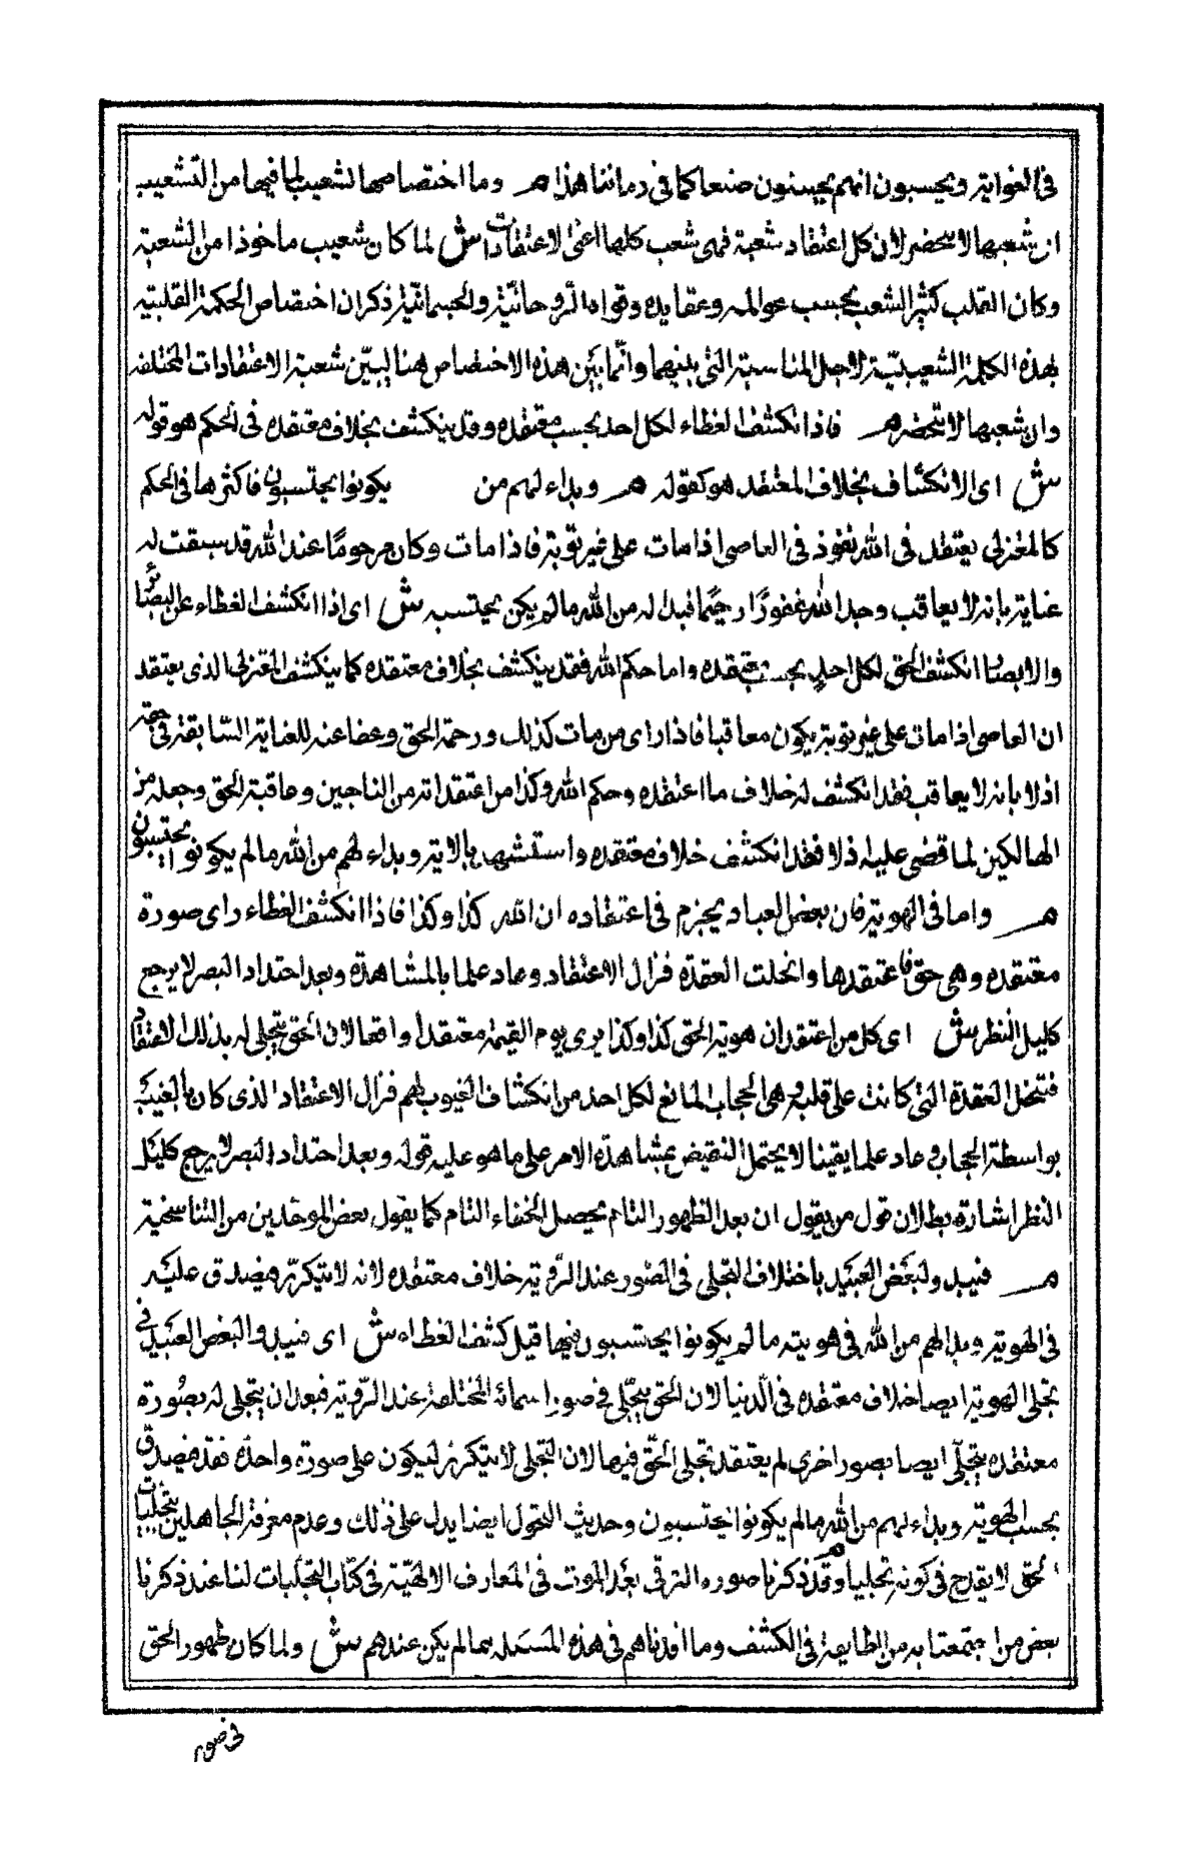 فى الغواية ويحسبون انهم يحسنون صنعا كما فى زماننا هذا م وما اختصاصها لشعيب لما فيها من التشعيب
ان شعبها لا تنحضر لان كل اعتقاد شعبة فهى شعب كلها اعنى الاعتقادات ش لما كان شعيب ماخوذا من الشعبة
وكان القلب كثير الشعب بحسب عوالمه وعقايده وقواه الروحانية والجسمانية ذكر ان اختصاص الحكمة القلبية
بهذه الكلمة الشعيبية لاجل المناسبة التى بينهما وانما بين هذه الاختصاص هنا ليبين شعبة الاعتقادات المختلفة
وان شعبها لا تنحضر م فاذا انكشف الغطاء لكل احد بحسب معتقده وقد ينكشف بخلاف معتقده فى الحكم هو قوله
ش اى الانكشاف بخلاف المعتقد هو كقوله م وبداء لهم من يكونوا يحتسبون فاكثرها فى الحكم
كالمعتزلى يعتقد فى الله نفوذ فى العاصى اذا مات على غير توبة فاذا مات وكان مرحوما عند الله قد سبقت له
عناية بانه لا يعاقب وجد الله غفورًا رحيمًا فبدا له من الله ما لم يكن يحتسبه ش اى اذا انكشف الغطاء عن البصائر
والابصار انكشف الحق لكل احد بحسب معتقده واما حكم الله فقد ينكشف بخلاف معتقده كما ينكشف المعتزلى الذى يعتقد
ان العاصى اذا مات على غير توبة يكون معاقبا فاذا راى من مات كذلك ورحمة الحق وعفا عنه للعناية السابقة فى حقه
اذلا بانه لا يعاقب فقد انكشف له خلاف ما اعتقده وحكم الله وكذا من اعتقد انه من الناجين وعاقبة الحق وجعله من
الهالكين لما قضى عليه اذلا فقد انكشف خلاف معتقده واستشهد بالاية وبداء لهم من الله ما لم يكونوا يحتسبون
م واما فى الهوية فان بعض العباد يجزم فى اعتقاده ان الله كذا وكذا فاذا انكشف الغطاء راى صورة
معتقده وهى حق فاعتقدها وانحلت العقدة فزال الاعتقاد وعاد علما بالمشاهدة وبعد احتداد البصر لا يرجع
كليل النظر ش اى كل من اعتقد ان هوية الحق كذا وكذا يرى يوم القيمة معتقدا واقعا لان الحق يتجلى له بذلك الاعتقاد
فتنحل العقدة التى كانت على قلبه وهى الحجاب المانع لكل احد من انكشاف الغيوب لهم فزال الاعتقاد الذى كان بالغيب
بواسطة الحجاب وعاد علما يقينا لا يحتمل النقيض بمشاهدة الامر على ما هو عليه قوله وبعد احتداد البصر لا يرجع كليل
النظر اشارة بطلان قول من يقول ان بعد الظهور التام يحصل الخفاء التام كما يقول بعض الموحدين من التناسخية
م فيبد ولبعض العبيد باختلاف التجلى فى الصور عند الرؤية خلاف معتقده لانه لا يتكرر فيصدق عليه
فى الهوية وبدا لهم من الله فى هويته ما لم يكونوا يحتسبون فيها قبل كشف الغطاء ش اى فيبد والبعض العبيد فى
تجلى الهوية ايصا خلاف معتقده فى الدنيا لان الحق يتجلى فى صور اسمائه المختلفة عند الرؤية فبعد ان يتجلى له بصورة
معتقده يتجلى ايصا بصور اخرى لم يعتقد تجلى الحق فيها لان التجلى لا يتكرر ليكون على صورة واحدة فقد فيصدق
بحسب الهوية وبداء لهم من الله ما لم يكونوا يحتسبون وحديث التحول ايضا يدل على ذلك وعدم معرفة الجاهلين بتجليات
الحق لا يقدح فى كونه تجليا م وقد ذكرنا صوره الترقى بعد الموت فى المعارف الالهية فى كتاب التجليات لنا عند ذكرنا
بعض من اجتمعنا به من الطايفة فى الكشف وما افدناهم فى هذه المسئله بما لم يكن عندهم ش ولما كان ظهور الحق
فى صور